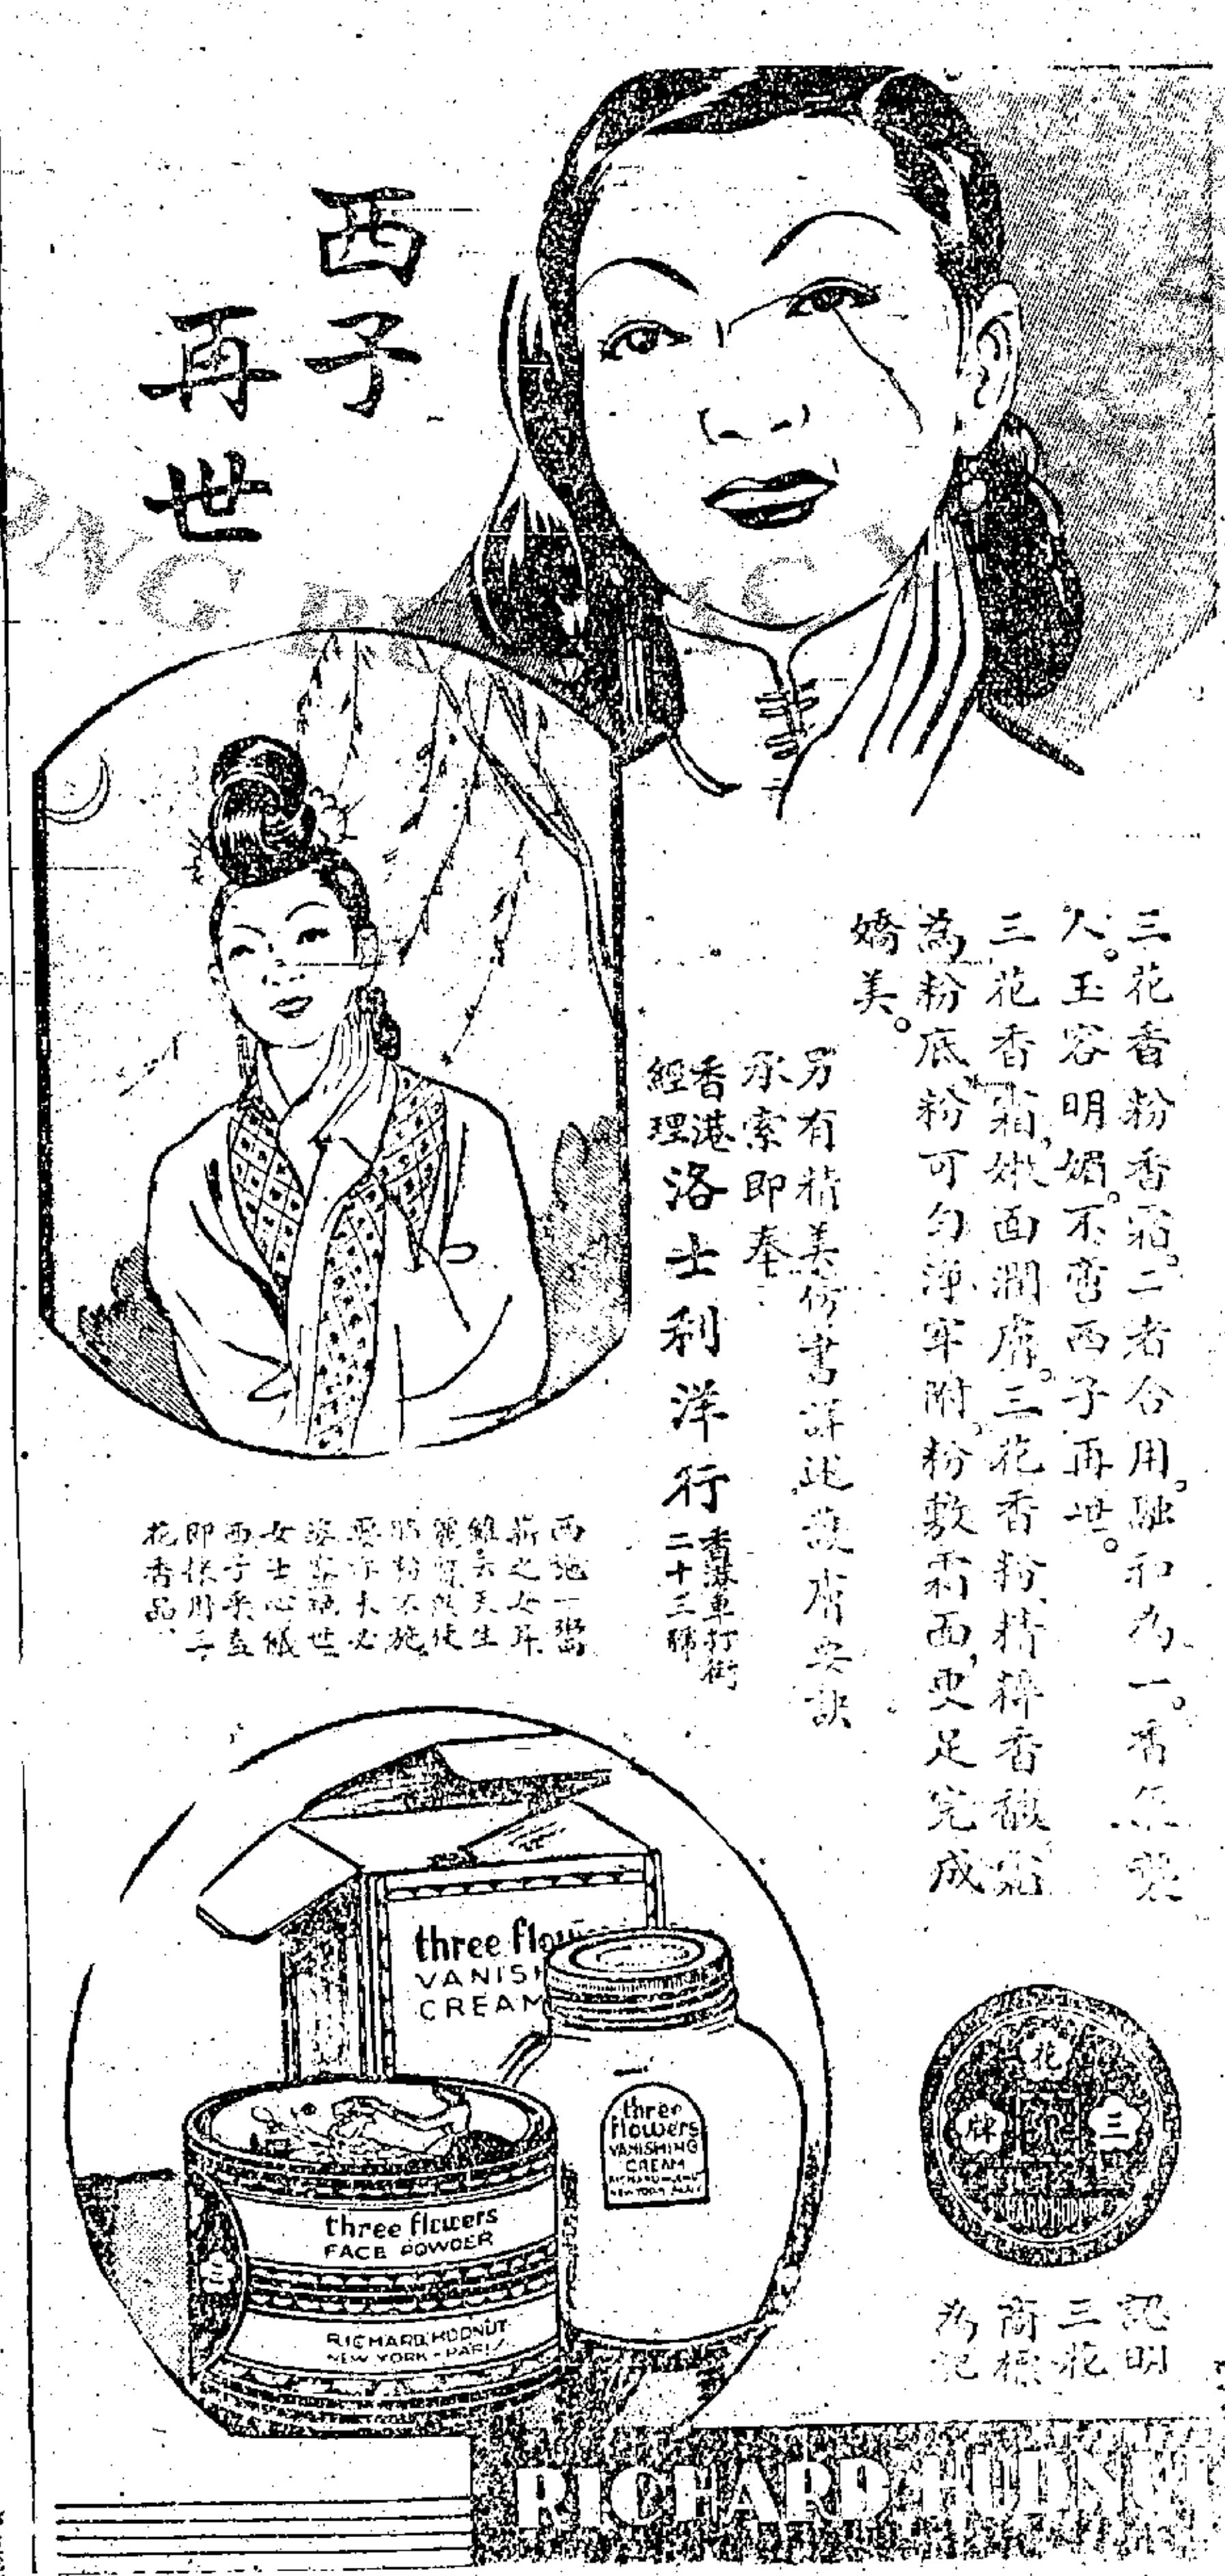 西子
再世
三花香粉香霜。二者合用。融和為一。香氣襲
人。玉容明媚。不啻西子再世。
三花香霜,嫩面潤膚。三花香粉精粹香馥霜
為粉底粉可勻淨牢附。粉敷霜面,更足完成
嬌美。
另有精美仿書詳述護膚要訣
承索即奉
香港
經理
洛士利洋行
香港車打街
二十三號
西施一鄉
薪之女耳
雖云天生
麗質然使
脂粉不施
要亦未必
姿容絕世
女士心儀
西子乎盍
即採用三
花香品
three flow
VANISH
CREAM
three
flowers
VANISHING
CREAM
RICHARD HUDNUT
NEW YORK PARIS
three flowers
FACE POWDER
RICHARD HUDNUT
NEW YORK - PARIS
三
花
三
牌
RICHARD HUDNUT
認明
三花
商標
為記
RICHARD HUDNUT